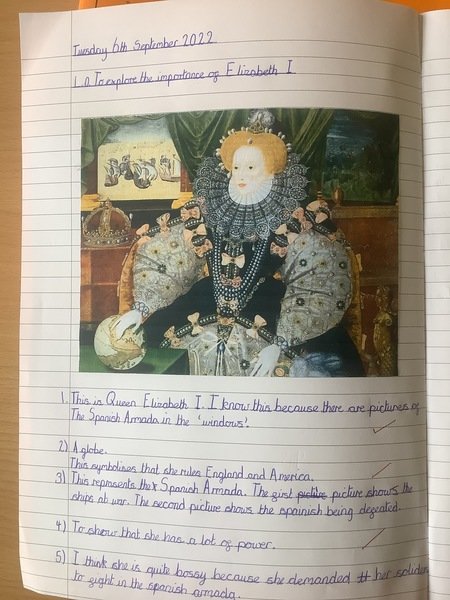 Tuesday 6th September 2022
L.O. To explore the importance of Elizabeth I
1. This is Queen Elizabeth I. I know this because there are pictures of
The Spanish Armada in the 'windows'.
2) A globe.
This symbolises that she rules England and America.
3) This represents the Spanish Armada. The first picture shows the
ships at war. The second picture shows the spainish being defeated.
4) To show that she has a lot of power.
5) I think she is quite bossy because she demanded her soliders
to fight in the spanish armada.